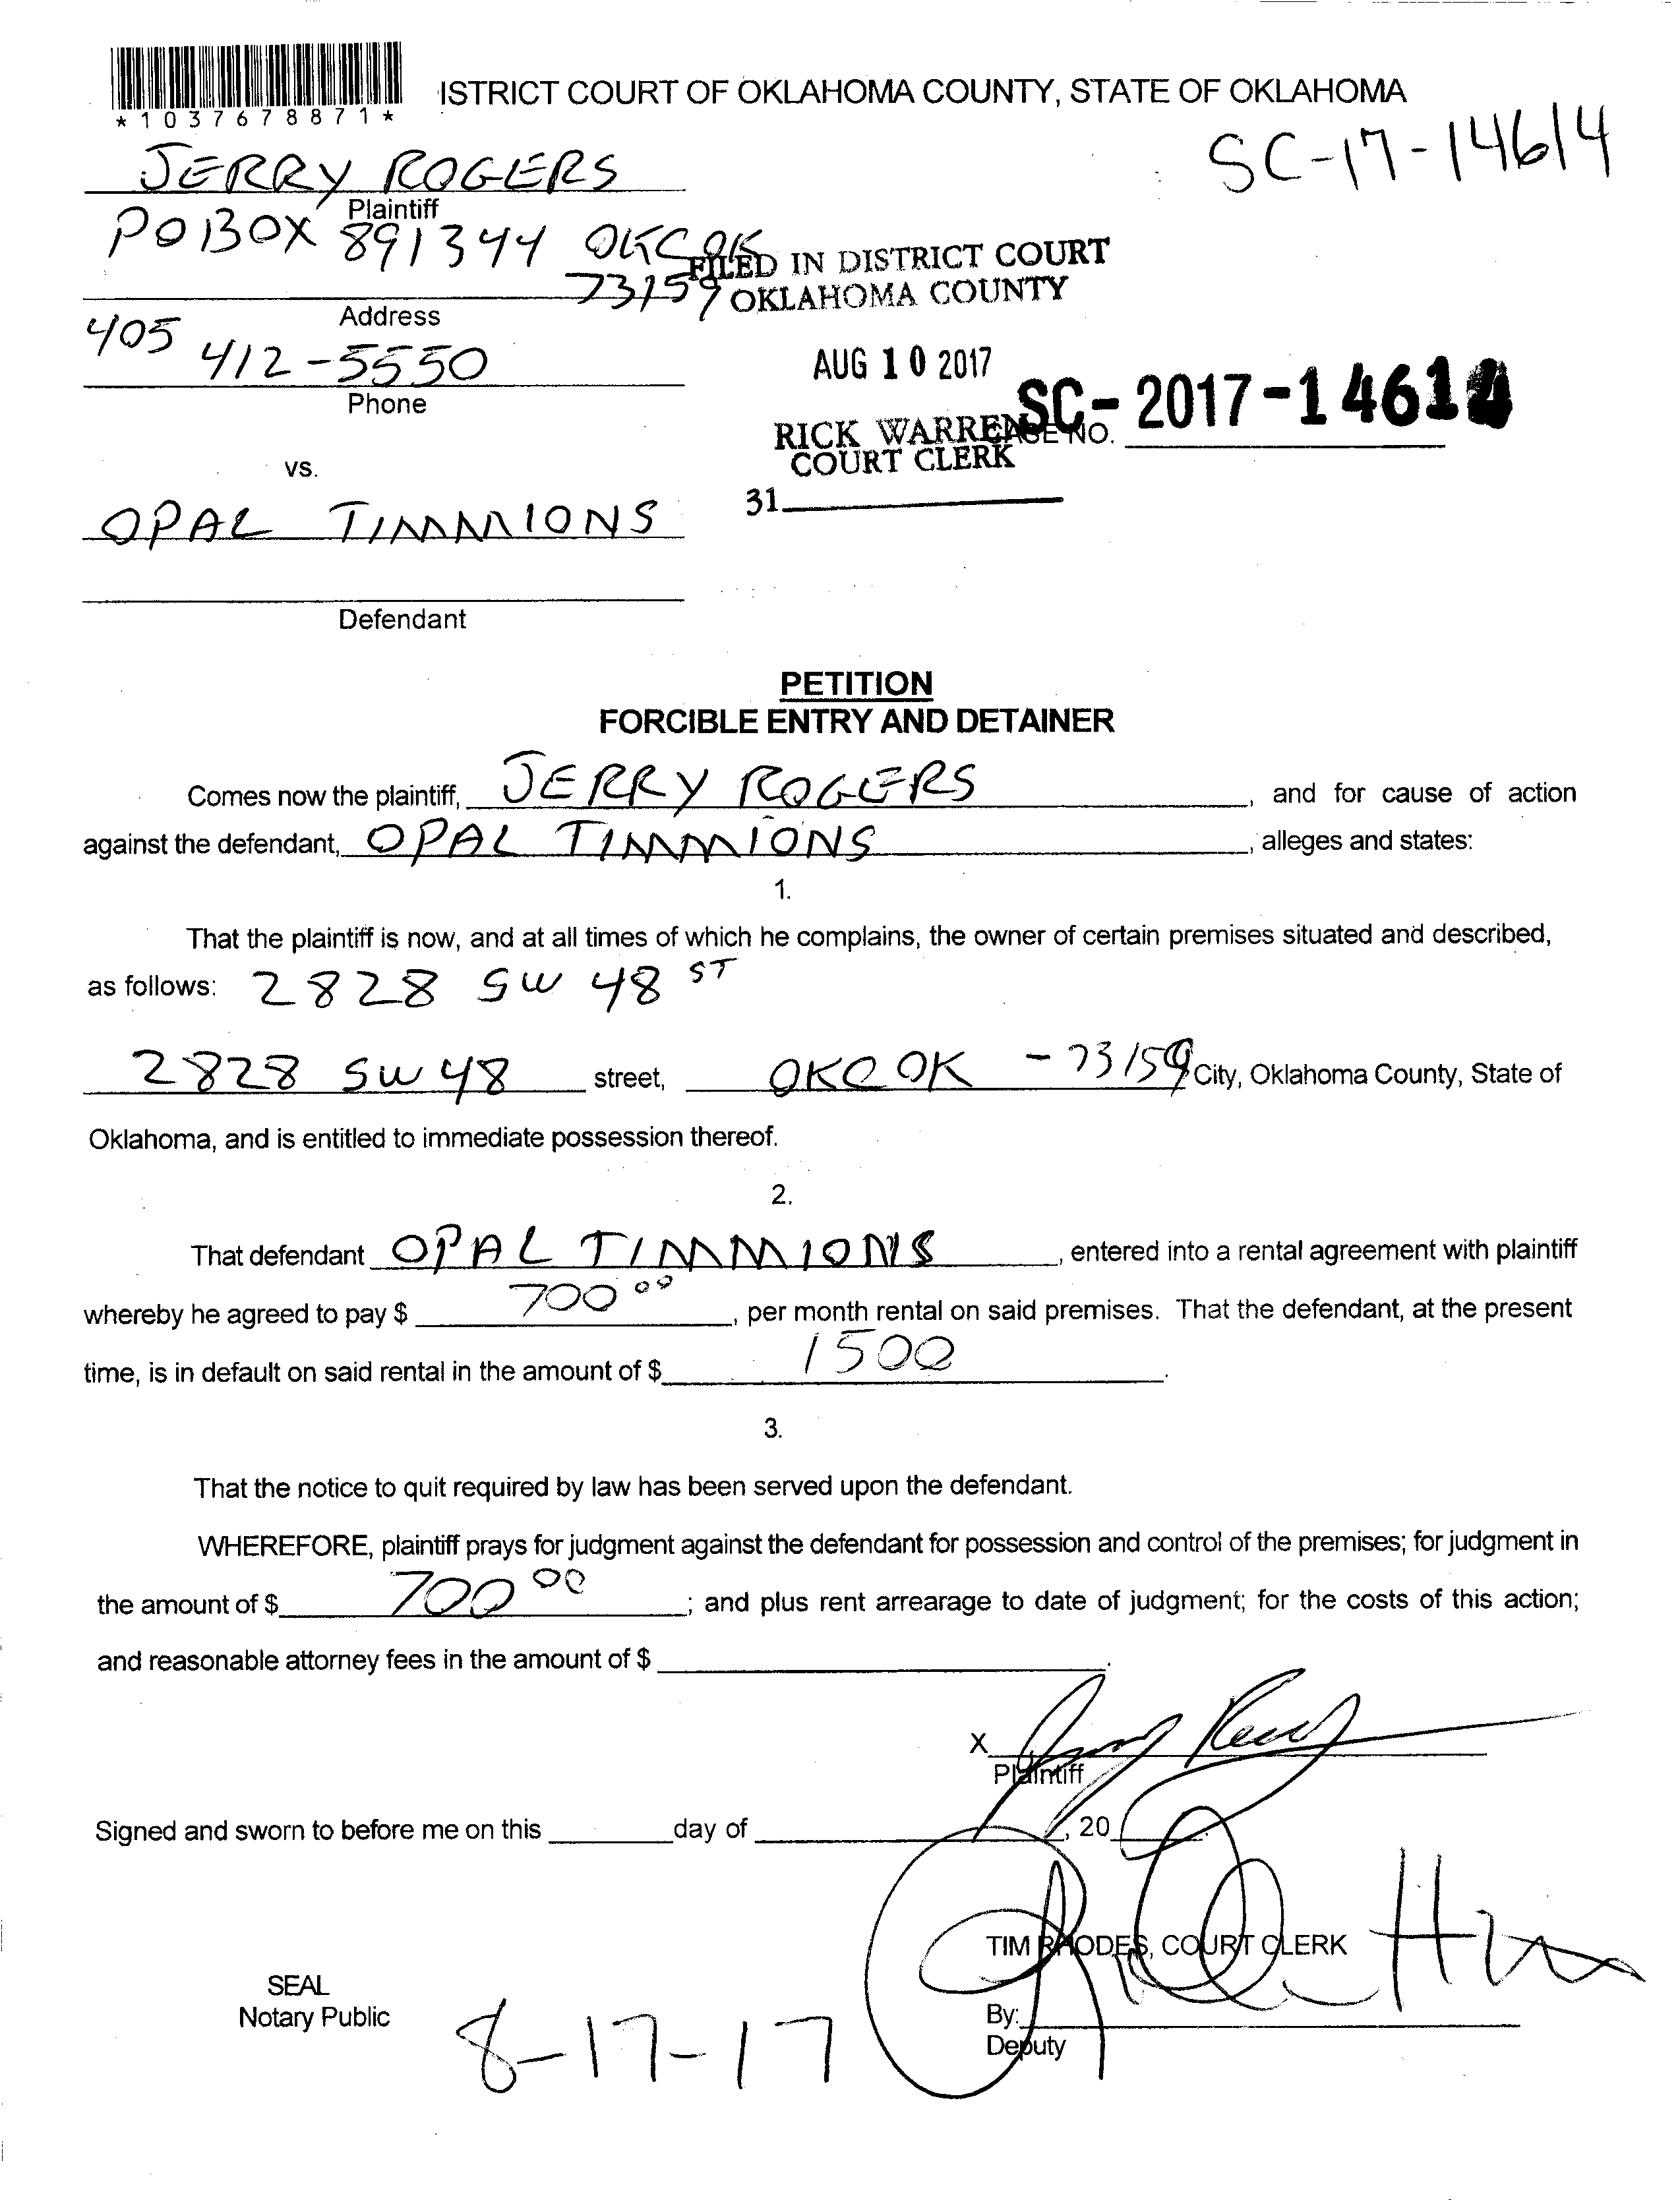 ISTRICT COURT OF OKLAHOMA COUNTY, STATE OF OKLAHOMA
*1037678871*
SC-17-14614
JERRY ROGERS
Plaintiff
PO BOX 891344 OKC OK
73159
FILED IN DISTRICT COURT
OKLAHOMA COUNTY
Address
405 412-5550
Phone
AUG 10 2017
SC-2017-14614
RICK WARREN
CASE NO.
COURT CLERK
31
vs.
OPAL TIMMIONS
Defendant
PETITION
FORCIBLE ENTRY AND DETAINER
Comes now the plaintiff, JERRY ROGERS, and for cause of action
against the defendant, OPAL TIMMIONS, alleges and states:
1.
That the plaintiff is now, and at all times of which he complains, the owner of certain premises situated and described,
as follows: 2828 SW 48 ST
2828 SW 48 street, OKC OK - 73159 City, Oklahoma County, State of
Oklahoma, and is entitled to immediate possession thereof.
2.
That defendant OPAL TIMMIONS, entered into a rental agreement with plaintiff
whereby he agreed to pay $ 700 00, per month rental on said premises. That the defendant, at the present
time, is in default on said rental in the amount of $ 1500.
3.
That the notice to quit required by law has been served upon the defendant.
WHEREFORE, plaintiff prays for judgment against the defendant for possession and control of the premises; for judgment in
the amount of $ 700 00; and plus rent arrearage to date of judgment; for the costs of this action;
and reasonable attorney fees in the amount of $ .
X
Plaintiff
Signed and sworn to before me on this day of , 20 .
TIM RHODES, COURT CLERK
SEAL
Notary Public
By:
Deputy
8-17-17